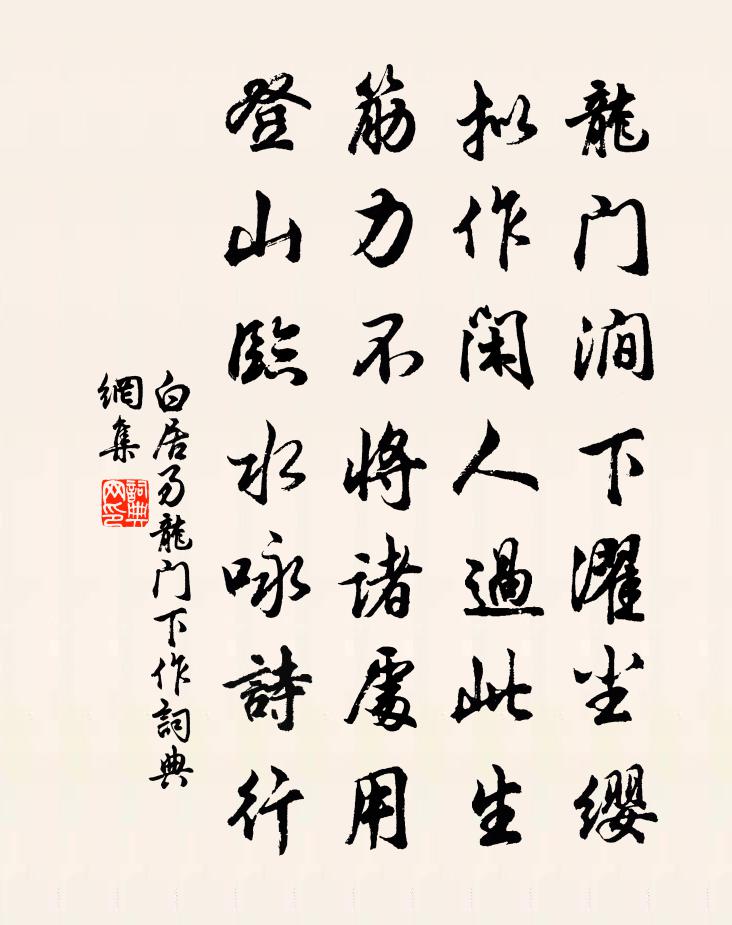 龍门涧下濯尘缨
拟作闲人過此生
筋力不將諸處用
登山臨水咏詩行
白居易龍门下作詞典
網集
詞典
网印